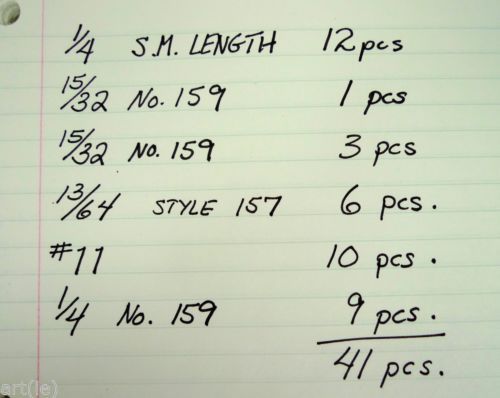 1/4 S.M. LENGTH 12 pcs
15/32 No. 159 1 pcs
15/32 No. 159 3 pcs
13/64 STYLE 157 6 pcs.
#11 10 pcs.
1/4 No. 159 9 pcs.
41 pcs.
art(ie)